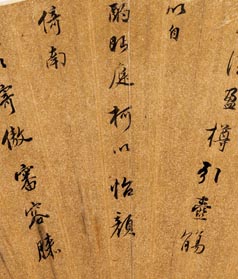 酒盈樽引壺觴
以自
酌眄庭柯以怡顏
倚南
寄傲審容膝